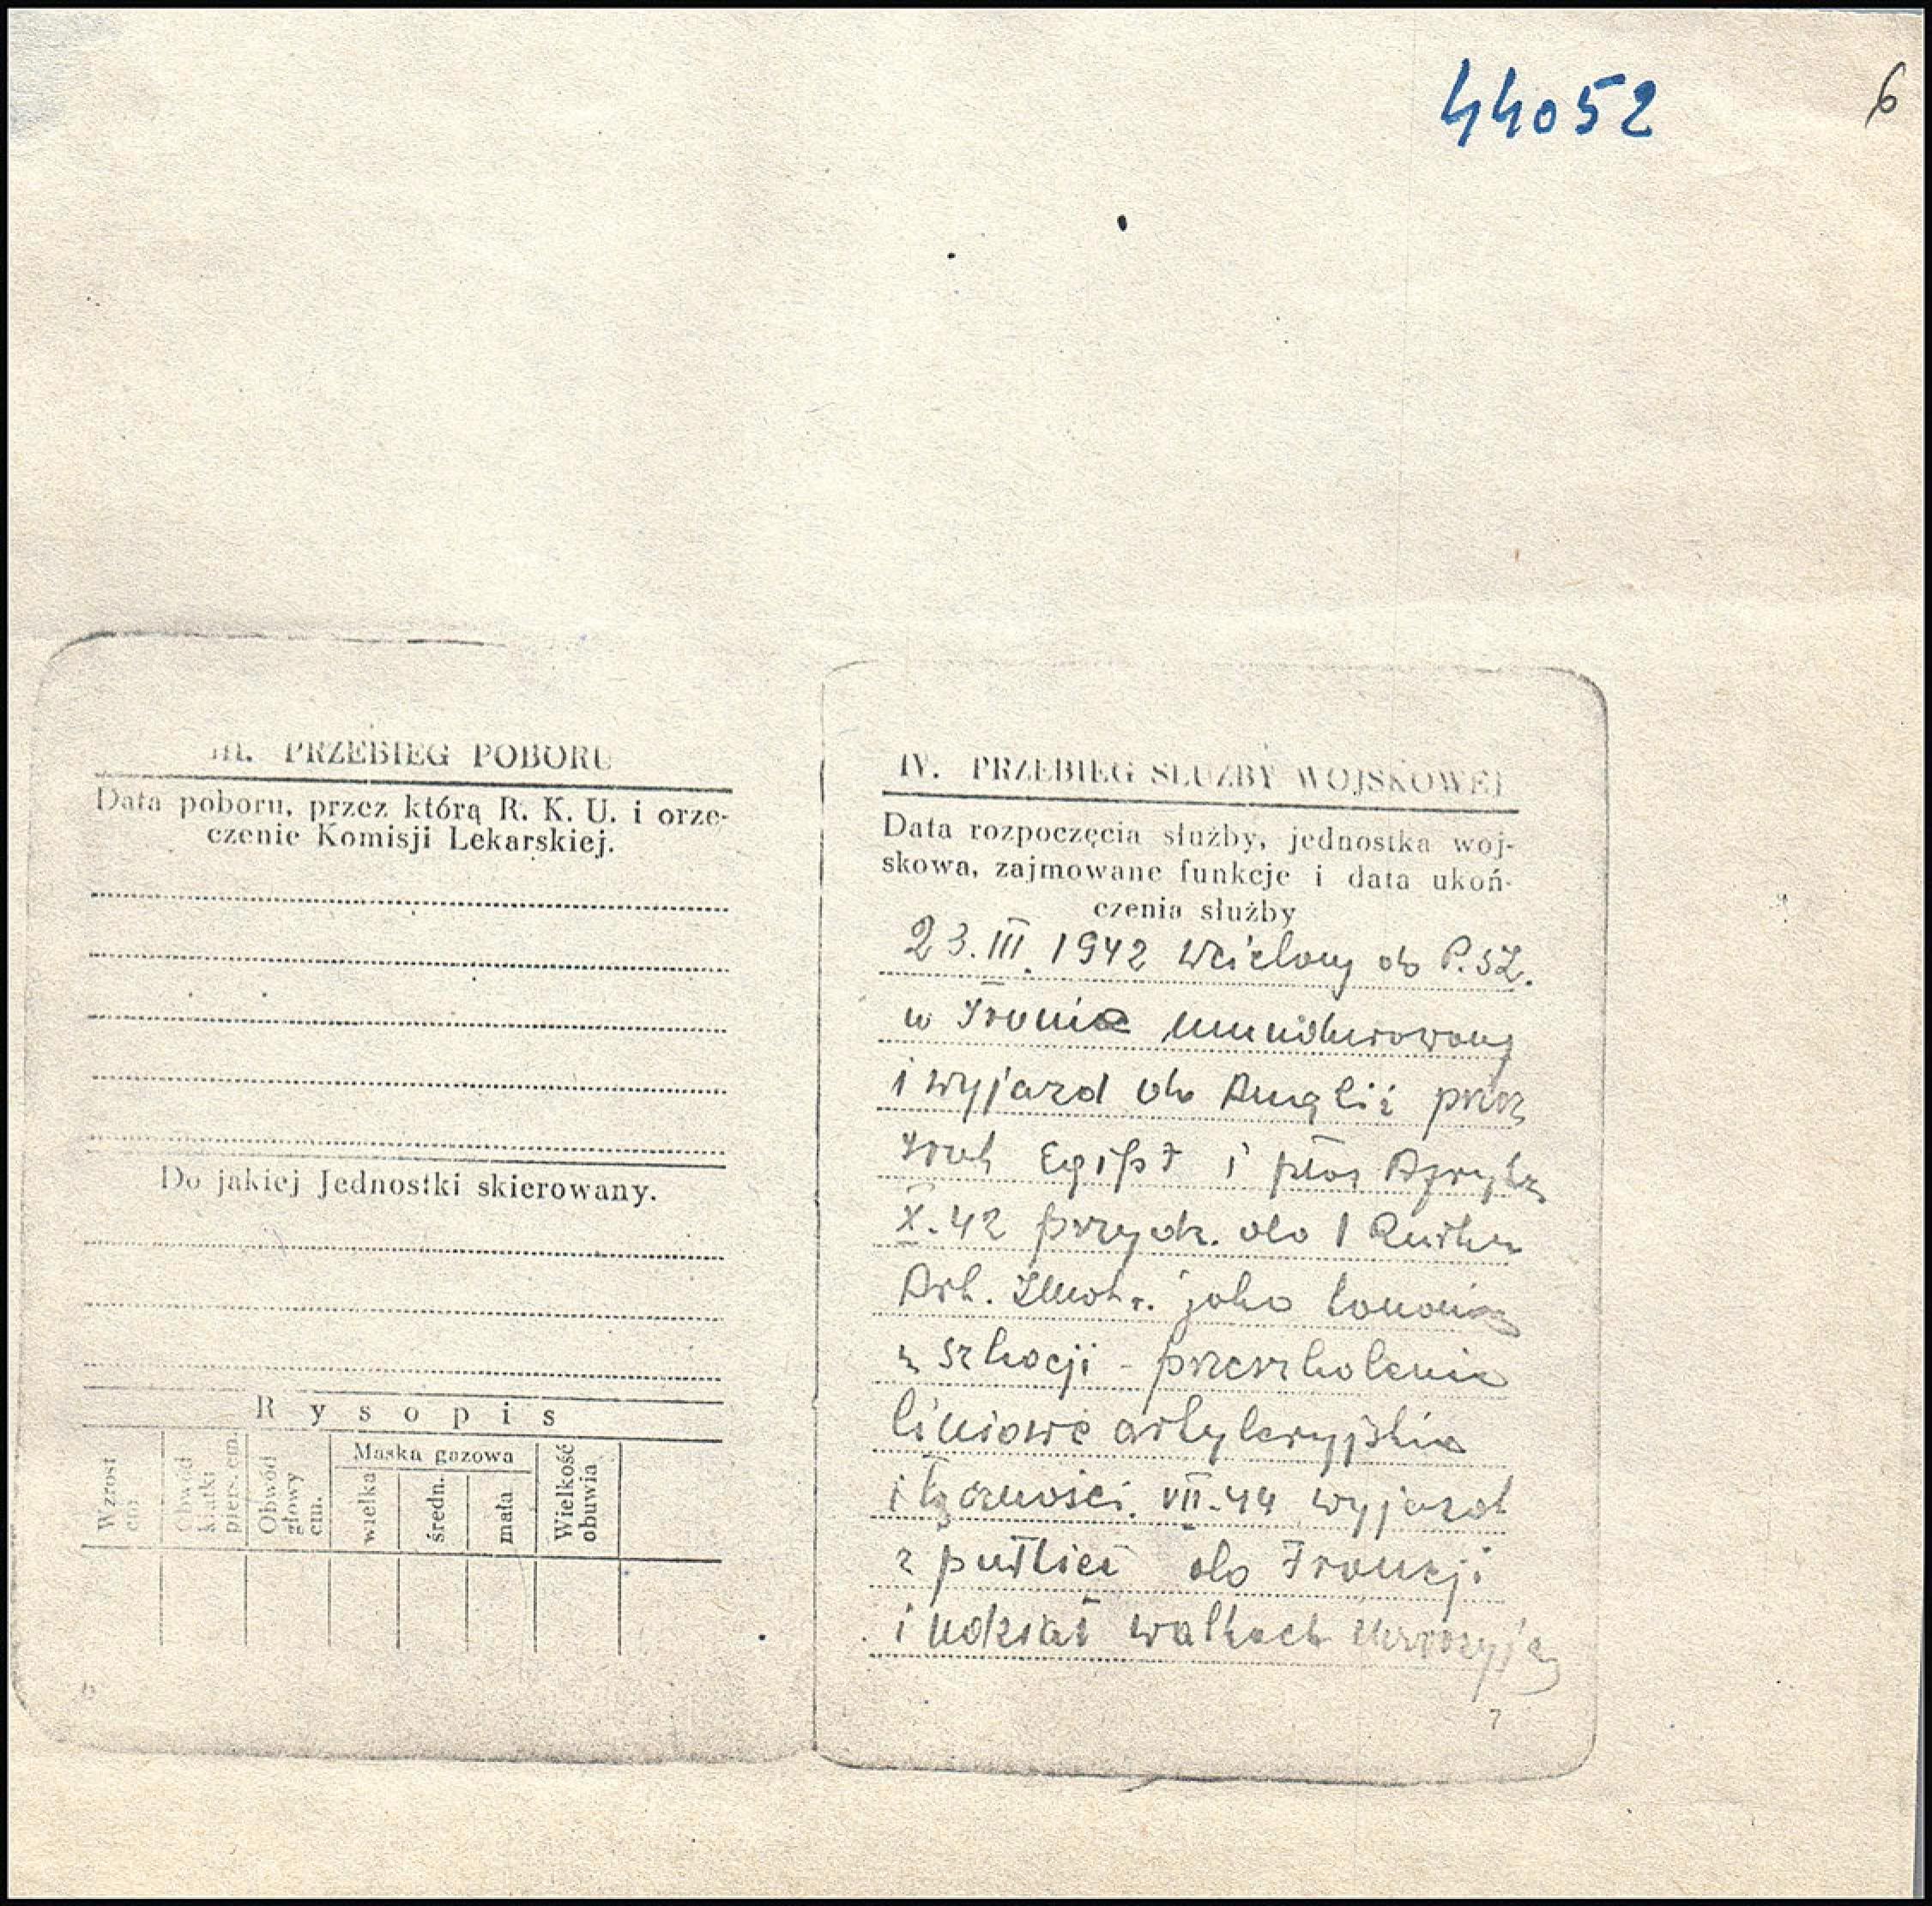 44052
6
III. PRZEBIEG POBORU
Data poboru, przez którą R. K. U. i orze-
czenie Komisji Lekarskiej.
Do jakiej Jednostki skierowany.
Rysopis
Wzrost cm.
Obwód klatki piers. cm.
Obwód głowy cm.
Maska gazowa
wielka
średn.
mała
Wielkość obuwia
IV. PRZEBIEG SŁUŻBY WOJSKOWEJ
Data rozpoczęcia służby, jednostka woj-
skowa, zajmowane funkcje i data ukoń-
czenia służby
23.III.1942 Wcielony do P.SZ.
w Iranie umundurowany
i wyjazd do Anglii przez
Irak Egipt i płd Afrykę
X.42 przydz. do 1 Pułku
Art. Zmot. jako
w Szkocji - przeszkolenie
liniowe artyleryjskie
i łączności. VII.44 wyjazd
z pułkiem do Francji
i udział walkach
7